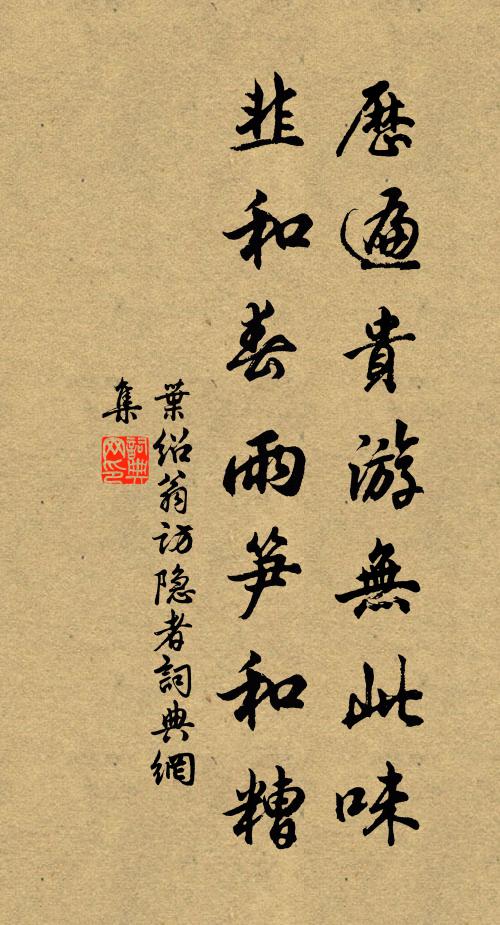 歷遍貴游無此味
韭和春雨笋和糟
葉紹翁訪隐者詞典網
集
詞典
网印